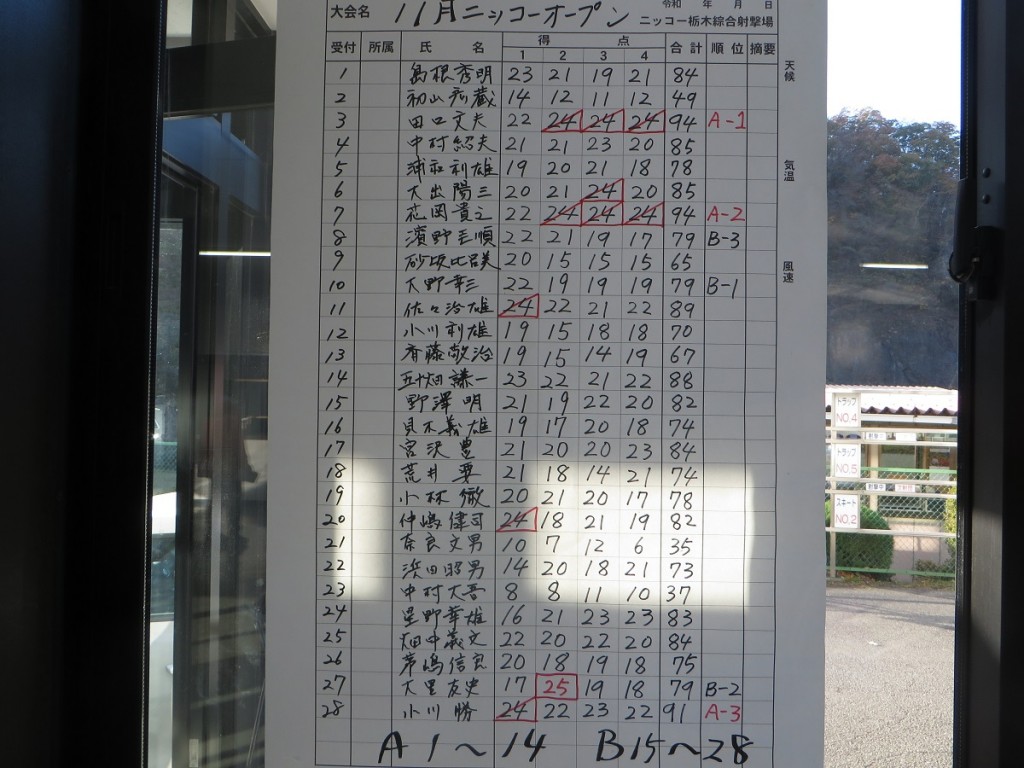 大会名 11月ニッコーオープン 令和 年 月 日 ニッコー栃木綜合射撃場
受付 所属 氏 名 得 点 合計 順位 摘要
1 2 3 4
1 島根秀明 23 21 19 21 84
2 初山 蔵 14 12 11 12 49
3 田口文夫 22 24 24 24 94 A-1
4 中村紹夫 21 21 23 20 85
5 浦和利雄 19 20 21 18 78
6 大出陽三 20 21 24 20 85
7 岡貴之 22 24 24 24 94 A-2
8 濱野 順 22 21 19 17 79 B-3
9 砂坂 20 15 15 15 65
10 大野幸三 22 19 19 19 79 B-1
11 佐々治雄 24 22 21 22 89
12 小川利雄 19 15 18 18 70
13 斉藤敬治 19 15 14 19 67
14 五十畑謙一 23 22 21 22 88
15 野澤明 21 19 22 20 82
16 義雄 19 17 20 18 74
17 宮沢豊 21 20 20 23 84
18 荒井要 21 18 14 21 74
19 小林徹 20 21 20 17 78
20 仲嶋偉司 24 18 21 19 82
21 奈良文男 10 7 12 6 35
22 浜田昭男 14 20 18 21 73
23 中村大吾 8 8 11 10 37
24 星野幸雄 16 21 23 23 83
25 畑中義文 22 20 22 20 84
26 茅嶋信良 20 18 19 18 75
27 大里友史 17 25 19 18 79 B-2
28 小川勝 24 22 23 22 91 A-3
A 1～14 B 15～28
天候
気温
風速
トラップ
NO.4
トラップ
NO.5
スキート
NO.2